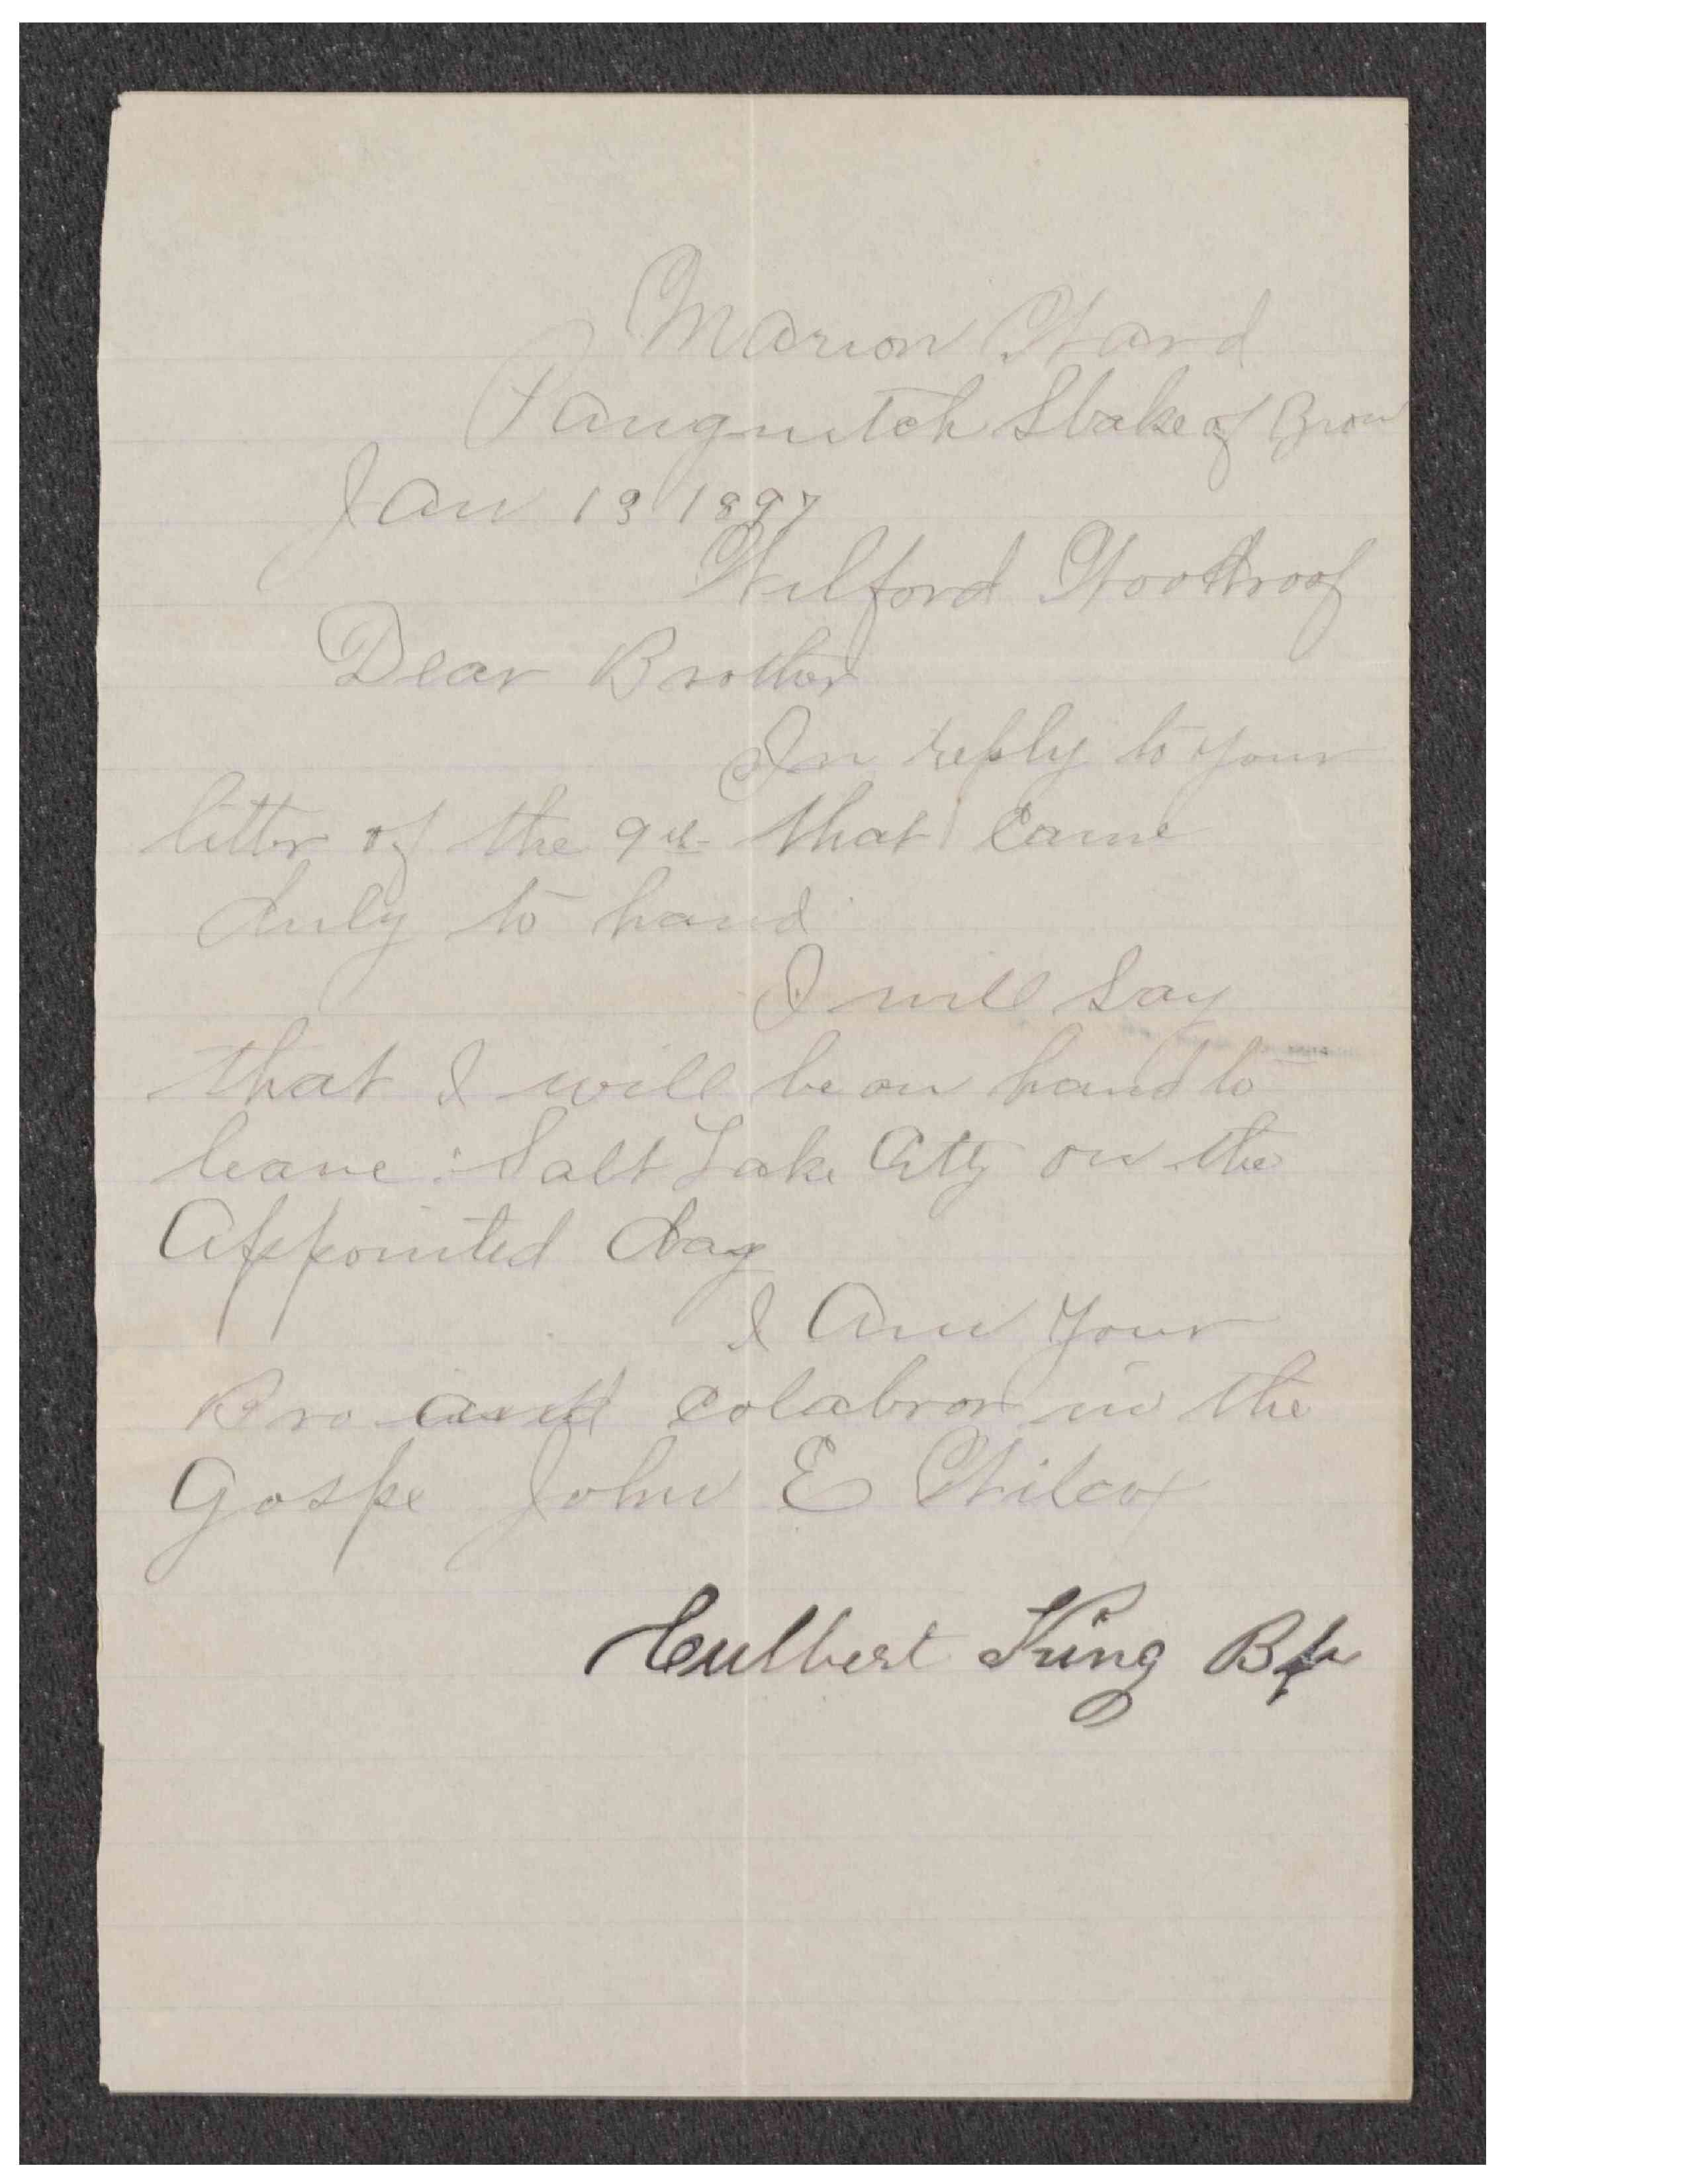 Marion Ward
Panguitch Stake of Zion
Jan 13 1897
Wilford Woodroof
Dear Brother
In reply to your
litter of the 9th that came
duly to hand
I will Say
that I will be on hand to
leave Salt Lake City on the
Appointed day
I Am Your
Bro and colabror in the
Gospe John E Wilcox
Culbert King Bp